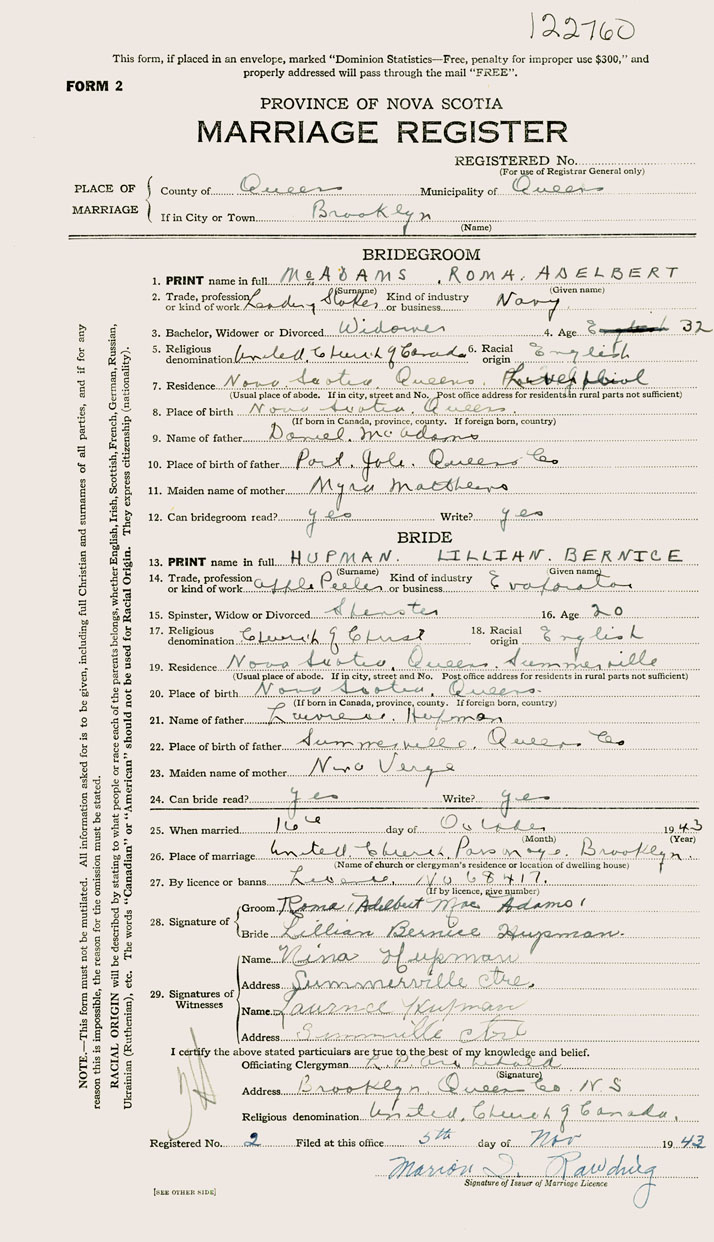 122760
This form, if placed in an envelope, marked "Dominion Statistics—Free, penalty for improper use $300," and
properly addressed will pass through the mail "FREE".
FORM 2
PROVINCE OF NOVA SCOTIA
MARRIAGE REGISTER
REGISTERED No.
(For use of Registrar General only)
PLACE OF MARRIAGE
County of Queens Municipality of Queens
If in City or Town Brooklyn
(Name)
BRIDEGROOM
1. PRINT name in full McADAMS, ROMA. ADELBERT
(Surname) (Given name)
2. Trade, profession or kind of work Leading Stoker Kind of industry or business Navy
3. Bachelor, Widower or Divorced Widower 4. Age 32
5. Religious denomination United Church of Canada 6. Racial origin English
7. Residence Nova Scotia, Queens. Liverpool
(Usual place of abode. If in city, street and No. Post office address for residents in rural parts not sufficient)
8. Place of birth Nova Scotia, Queens.
(If born in Canada, province, county. If foreign born, country)
9. Name of father Daniel. McAdams
10. Place of birth of father Port. Joli. Queens Co
11. Maiden name of mother Myra Matthews
12. Can bridegroom read? yes Write? yes
BRIDE
13. PRINT name in full HUPMAN. LILLIAN. BERNICE
(Surname) (Given name)
14. Trade, profession or kind of work Apple Peeler Kind of industry or business Evaporator
15. Spinster, Widow or Divorced Spinster 16. Age 20
17. Religious denomination Church of Christ 18. Racial origin English
19. Residence Nova Scotia, Queens. Summerville
(Usual place of abode. If in city, street and No. Post office address for residents in rural parts not sufficient)
20. Place of birth Nova Scotia, Queens.
(If born in Canada, province, county. If foreign born, country)
21. Name of father Hupman
22. Place of birth of father Summerville. Queens Co
23. Maiden name of mother Nina Verge
24. Can bride read? yes Write? yes
25. When married 16th day of October 1943
(Month) (Year)
26. Place of marriage United Church Parsonage. Brooklyn.
(Name of church or clergyman's residence or location of dwelling house)
27. By licence or banns Licence, No 68417.
(If by licence, give number)
28. Signature of
Groom Roma (Adelbert Mac Adams)
Bride Lillian Bernice Hupman.
29. Signatures of Witnesses
Name Nina Hupman
Address Summerville Ctre.
Name Laurnce Hupman
Address Summville Ctre
I certify the above stated particulars are true to the best of my knowledge and belief.
Officiating Clergyman
(Signature)
Address Brooklyn, Queens Co. N.S
Religious denomination United. Church of Canada.
Registered No. 2 Filed at this office 5th day of Nov 1943
Marion
Signature of Issuer of Marriage Licence
[SEE OTHER SIDE]
NOTE.—This form must not be mutilated. All information asked for is to be given, including full Christian and surnames of all parties, and if for any
reason this is impossible, the reason for the omission must be stated.
RACIAL ORIGIN will be described by stating to what people or race each of the parents belongs, whether English, Irish, Scottish, French, German, Russian,
Ukrainian (Ruthenian), etc. The words "Canadian" or "American" should not be used for Racial Origin. They express citizenship (nationality).